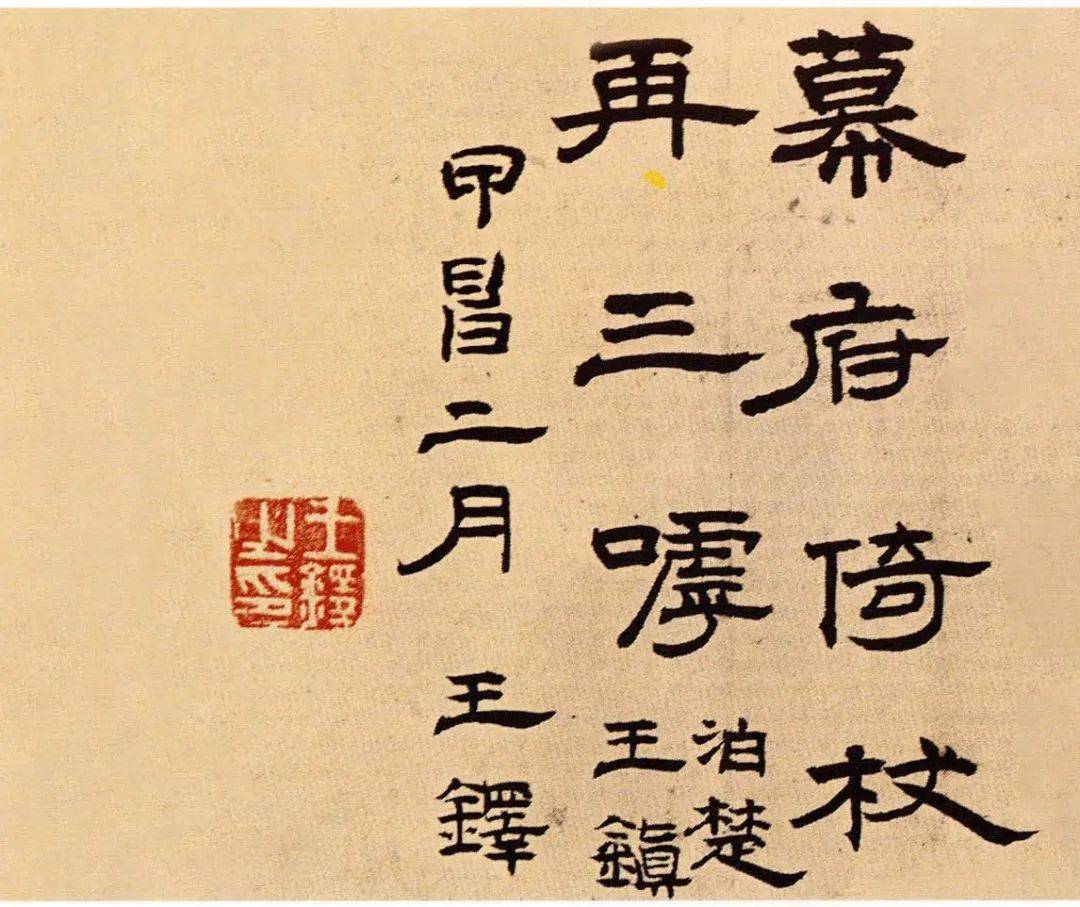 幕府倚杖
再三嘑
泊楚
王鎮
甲申二月 王鐸
王鐸
之印